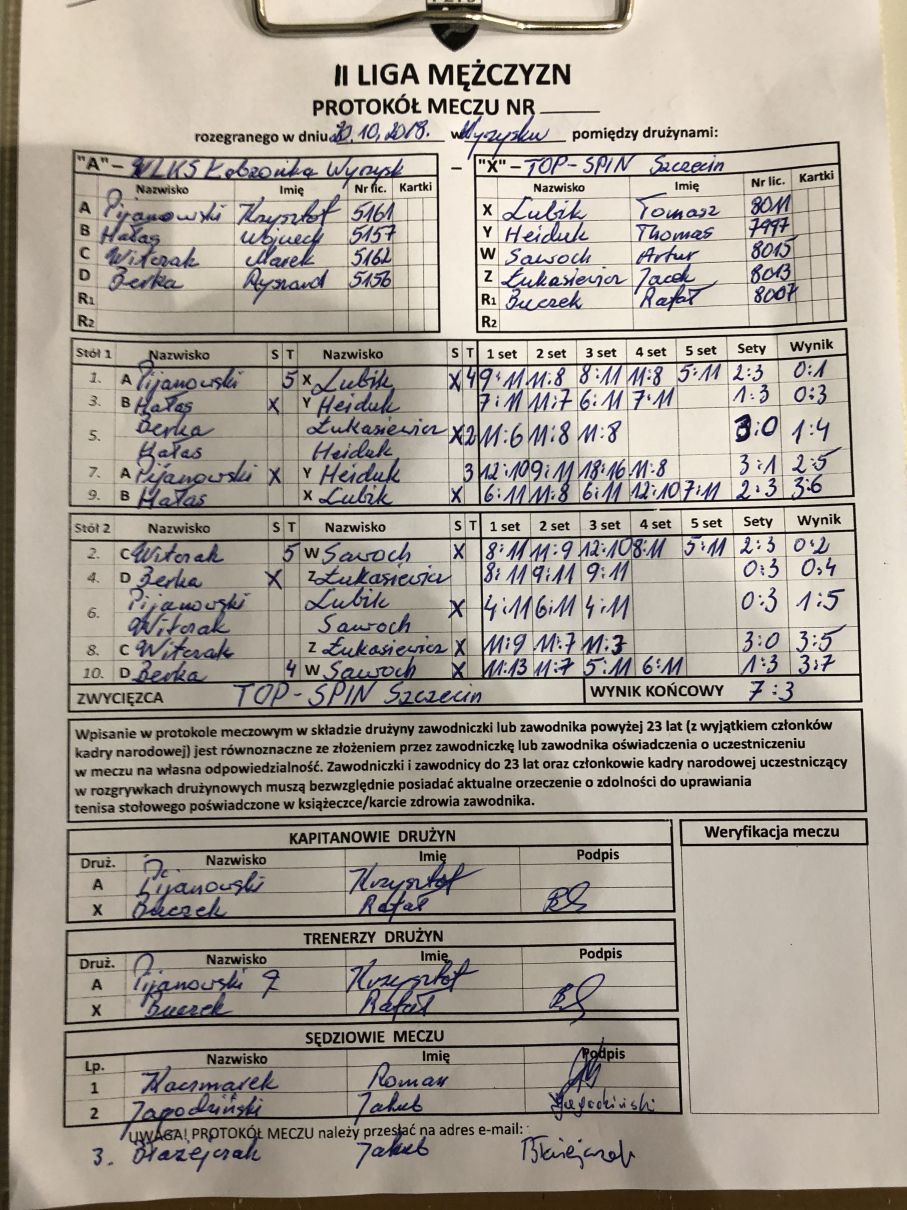 II LIGA MĘŻCZYZN
PROTOKÓŁ MECZU NR
rozegranego w dniu 20.10.2018. w Wyrzysku pomiędzy drużynami:
"A" – WLKS Łobzonka Wyrzysk – "X" – TOP-SPIN Szczecin
Nazwisko Imię Nr lic. Kartki Nazwisko Imię Nr lic. Kartki
A Pijanowski Krzysztof 5161 X Lubik Tomasz 8011
B Hałas Wojciech 5157 Y Heiduk Thomas 7997
C Witczak Marek 5162 W Sawoch Artur 8015
D Berka Ryszard 5156 Z Łukasiewicz Jacek 8013
R1 R1 Buczek Rafał 8007
R2 R2
Stół 1 Nazwisko S T Nazwisko S T 1 set 2 set 3 set 4 set 5 set Sety Wynik
1. A Pijanowski 5 X Lubik X 4 9:11 11:8 8:11 11:8 5:11 2:3 0:1
3. B Hałas X Y Heiduk 7:11 11:7 6:11 7:11 1:3 0:3
5. Berka Łukasiewicz X 2 11:6 11:8 11:8 3:0 1:4
Hałas Heiduk
7. A Pijanowski X Y Heiduk 3 12:10 9:11 18:16 11:8 3:1 2:5
9. B Hałas X Lubik X 6:11 11:8 6:11 12:10 7:11 2:3 3:6
Stół 2 Nazwisko S T Nazwisko S T 1 set 2 set 3 set 4 set 5 set Sety Wynik
2. C Witczak 5 W Sawoch X 8:11 11:9 12:10 8:11 5:11 2:3 0:2
4. D Berka X Z Łukasiewicz 8:11 9:11 9:11 0:3 0:4
6. Pijanowski Lubik X 4:11 6:11 4:11 0:3 1:5
Witczak Sawoch
8. C Witczak Z Łukasiewicz X 11:9 11:7 11:7 3:0 3:5
10. D Berka 4 W Sawoch X 11:13 11:7 5:11 6:11 1:3 3:7
ZWYCIĘZCA TOP-SPIN Szczecin WYNIK KOŃCOWY 7:3
Wpisanie w protokole meczowym w składzie drużyny zawodniczki lub zawodnika powyżej 23 lat (z wyjątkiem członków
kadry narodowej) jest równoznaczne ze złożeniem przez zawodniczkę lub zawodnika oświadczenia o uczestniczeniu
w meczu na własna odpowiedzialność. Zawodniczki i zawodnicy do 23 lat oraz członkowie kadry narodowej uczestniczący
w rozgrywkach drużynowych muszą bezwzględnie posiadać aktualne orzeczenie o zdolności do uprawiania
tenisa stołowego poświadczone w książeczce/karcie zdrowia zawodnika.
KAPITANOWIE DRUŻYN Weryfikacja meczu
Druż. Nazwisko Imię Podpis
A Pijanowski Krzysztof
X Buczek Rafał
TRENERZY DRUŻYN
Druż. Nazwisko Imię Podpis
A Pijanowski Krzysztof
X Buczek Rafał
SĘDZIOWIE MECZU
Lp. Nazwisko Imię Podpis
1 Kaczmarek Roman
2 Jagodziński Jakub Jagodziński
UWAGA! PROTOKÓŁ MECZU należy przesłać na adres e-mail:
3. Błażejczak Jakub